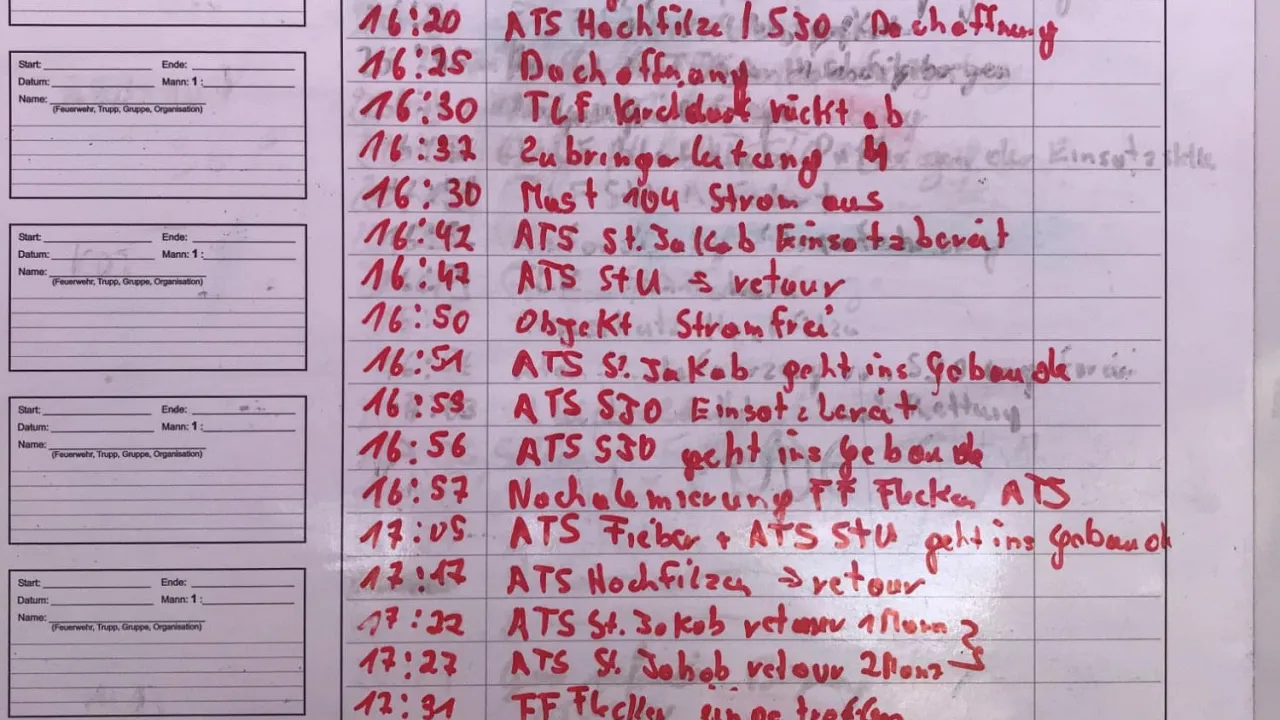 16:20 ATS Hochfilze / SJO Dachöffnung
Start: Ende:
Datum: Mann: 1 :
Name:
(Feuerwehr, Trupp, Gruppe, Organisation)
16:25 Dachöffnung
16:30 TLF Kirchdorf rückt ab
16:37 Zubringerleitung 4
16:30 Mast 104 Strom aus
Start: Ende:
Datum: Mann: 1 :
Name:
(Feuerwehr, Trupp, Gruppe, Organisation)
16:42 ATS St. Jakob Einsatzbereit
16:47 ATS StU → retour
16:50 Objekt Stromfrei
16:51 ATS St. Jakob geht ins Gebäude
Start: Ende:
Datum: Mann: 1 :
Name:
(Feuerwehr, Trupp, Gruppe, Organisation)
16:53 ATS SJO Einsatzbereit
16:56 ATS SJO geht ins Gebäude
16:57 Nachalamierung FF Flecken ATS
17:05 ATS Fieber + ATS StU geht ins Gebäude
Start: Ende:
Datum: Mann: 1 :
Name:
(Feuerwehr, Trupp, Gruppe, Organisation)
17:17 ATS Hochfilzen → retour
17:22 ATS St. Jakob retour 1 Mann
17:27 ATS St. Jakob retour 2 Mann
17:31 FF Flecken eingetroffen